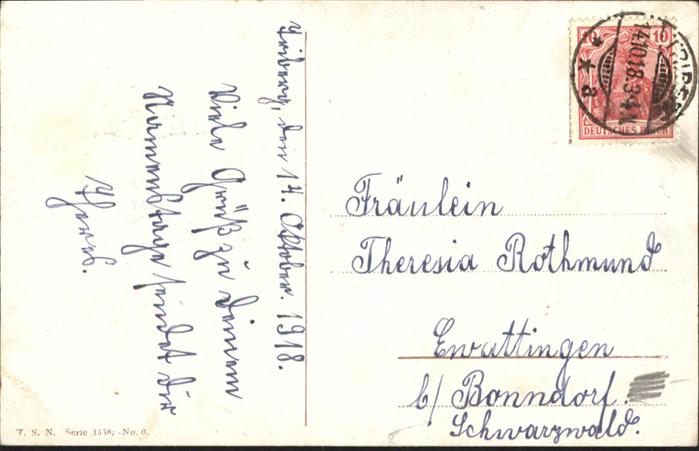 Triberg, den 14. Oktober. 1918.
Viele Grüße zu Deinem
Namenstage sendet Dir
Theres.
10 10
DEUTSCHES REICH
TRIBERG
14.10.18.3-4N.
* a *
Fräulein
Theresia Rothmund
Ewattingen
b/ Bonndorf.
Schwarzwald.
T. S. N. Serie 1558, No. 6.